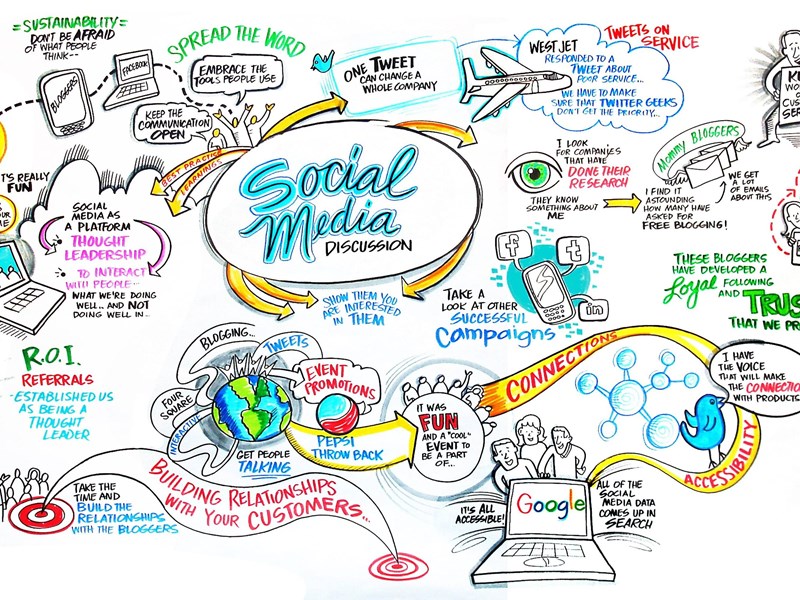 = SUSTAINABILITY =
DON'T BE AFRAID
OF WHAT PEOPLE
THINK--
BLOGGERS
FACEBOOK
SPREAD THE WORD
EMBRACE THE
TOOLS PEOPLE USE
KEEP THE
COMMUNICATION
OPEN
BEST PRACTICE
LEARNINGS
ONE TWEET
CAN CHANGE A
WHOLE COMPANY
WESTJET
RESPONDED TO A
TWEET ABOUT
POOR SERVICE...
WE HAVE TO MAKE
SURE THAT TWITTER GEEKS
DON'T GET THE PRIORITY...
TWEETS ON
SERVICE
Social
Media
DISCUSSION
I LOOK
FOR COMPANIES
THAT HAVE
DONE THEIR
RESEARCH
THEY KNOW
SOMETHING ABOUT
ME
MOMMY BLOGGERS
I FIND IT
ASTOUNDING
HOW MANY HAVE
ASKED FOR
FREE BLOGGING!
WE GET
A LOT
OF EMAILS
ABOUT THIS
REALLY
FUN
SOCIAL
MEDIA AS
A PLATFORM
THOUGHT
LEADERSHIP
TO INTERACT
WITH PEOPLE--
WHAT WE'RE DOING
WELL...AND NOT
DOING WELL IN...
SHOW THEM YOU
ARE INTERESTED
IN THEM
TAKE A
LOOK AT OTHER
SUCCESSFUL
Campaigns
f
t
in
THESE BLOGGERS
HAVE DEVELOPED A
Loyal FOLLOWING
AND TRUS
THAT WE PR
R.O.I.
REFERRALS
-ESTABLISHED US
AS BEING A
THOUGHT
LEADER
BLOGGING...
TWEETS
FOUR
SQUARE
INTERACTIVE
EVENT
PROMOTIONS
GET PEOPLE
TALKING
PEPSI
THROW BACK
IT WAS
FUN
AND A "COOL"
EVENT TO
BE A PART
OF...
CONNECTIONS
I HAVE
THE VOICE
THAT WILL MAKE
THE CONNECTIO
WITH PRODUCTS
ACCESSIBILITY
TAKE THE
TIME AND
BUILD THE
RELATIONSHIPS
WITH THE BLOGGERS
BUILDING RELATIONSHIPS
WITH YOUR CUSTOMERS...
IT'S ALL
ACCESSIBLE!
Google
ALL OF THE
SOCIAL
MEDIA DATA
COMES UP IN
SEARCH